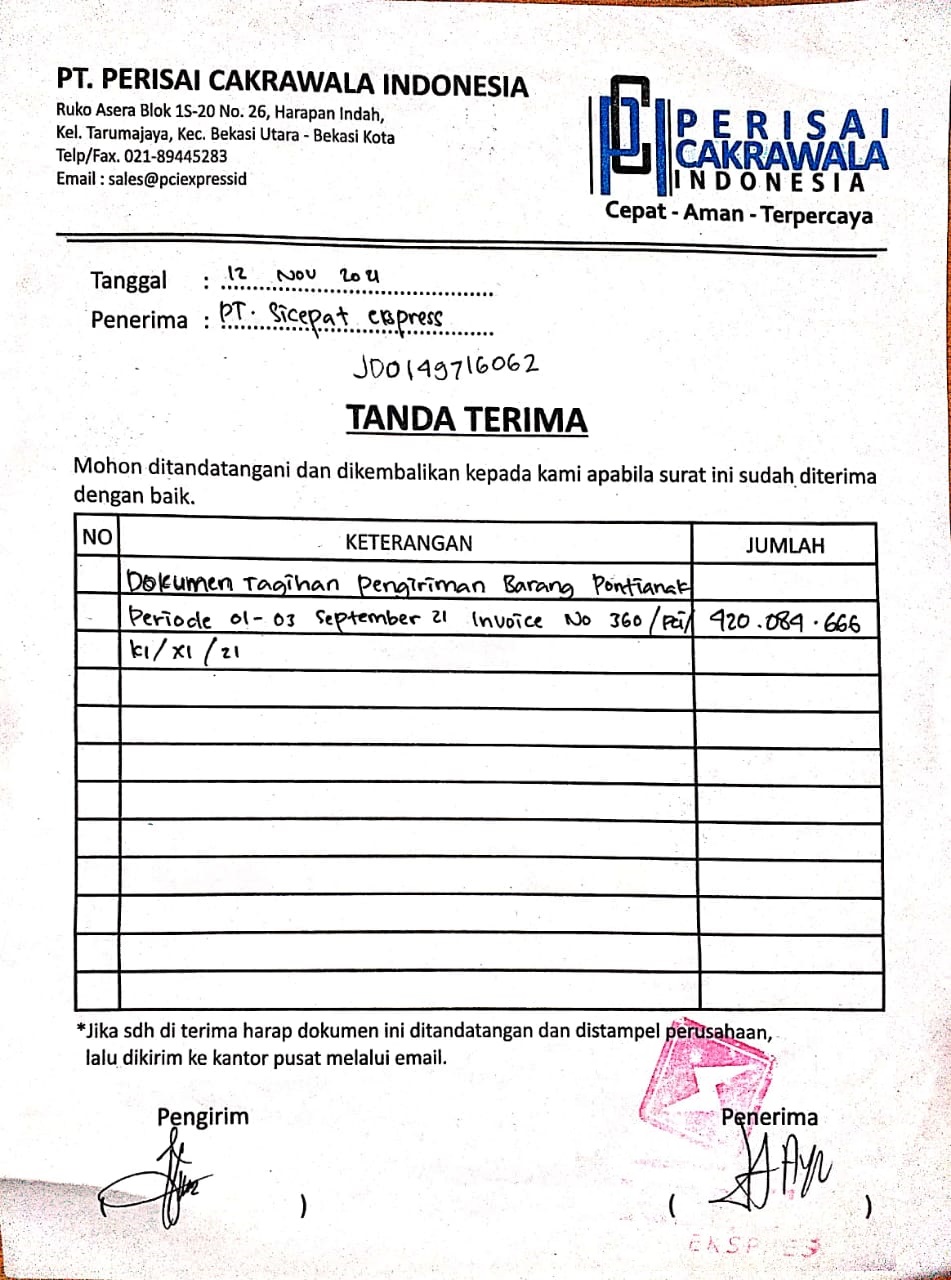 PT. PERISAI CAKRAWALA INDONESIA
Ruko Asera Blok 1S-20 No. 26, Harapan Indah,
Kel. Tarumajaya, Kec. Bekasi Utara - Bekasi Kota
Telp/Fax. 021-89445283
Email : sales@pciexpressid
PERISAI
CAKRAWALA
INDONESIA
Cepat - Aman - Terpercaya
Tanggal : 12 Nov 2021
Penerima : PT. Sicepat express
JD0149716062
TANDA TERIMA
Mohon ditandatangani dan dikembalikan kepada kami apabila surat ini sudah diterima
dengan baik.
NO KETERANGAN JUMLAH
Dokumen Tagihan Pengiriman Barang Pontianak
Periode 01-03 September 21 Invoice No 360/Pci/ 920.084.666
KI/XI/21
*Jika sdh di terima harap dokumen ini ditandatangan dan distampel perusahaan,
lalu dikirim ke kantor pusat melalui email.
Pengirim Penerima
) ( Ayu )